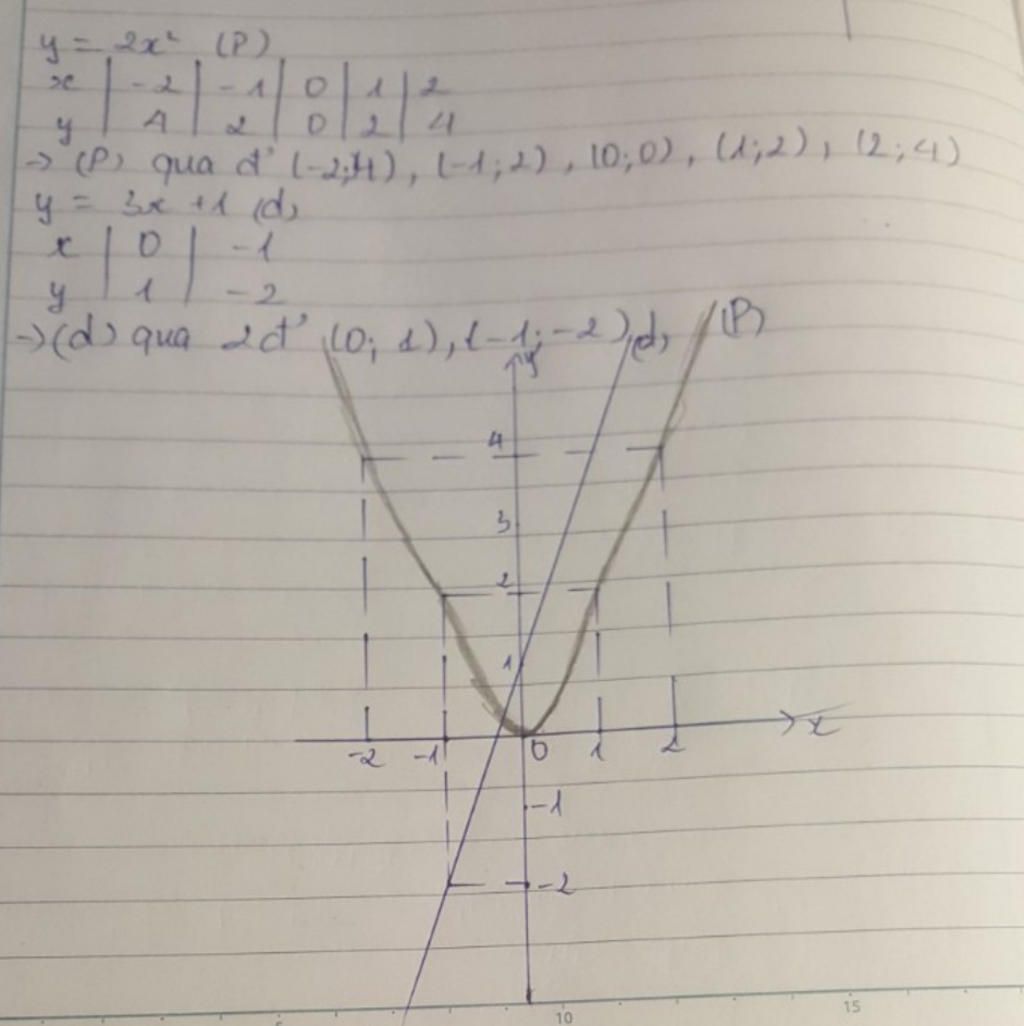 y = 2x² (P)
x | -2 | -1 | 0 | 1 | 2
y | 4 | 2 | 0 | 2 | 4
→ (P) qua đ' (-2;4), (-1;2), (0;0), (1;2), (2;4)
y = 3x + 1 (d)
x | 0 | -1
y | 1 | -2
→ (d) qua 2đ' (0; 1), (-1; -2)
(d) (P)
y
4
3
2
1
-2 -1 0 1 2 x
-1
-2
10 15